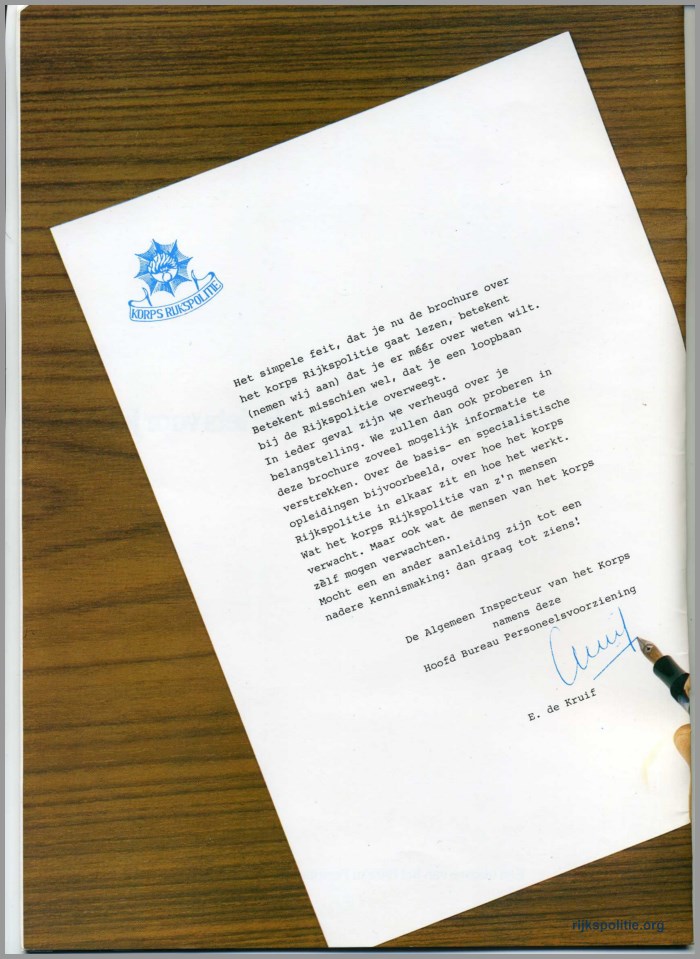 KORPS RIJKSPOLITIE
Het simpele feit, dat je nu de brochure over
het korps Rijkspolitie gaat lezen, betekent
(nemen wij aan) dat je er méér over weten wilt.
Betekent misschien wel, dat je een loopbaan
bij de Rijkspolitie overweegt.
In ieder geval zijn we verheugd over je
belangstelling. We zullen dan ook proberen in
deze brochure zoveel mogelijk informatie te
verstrekken. Over de basis- en specialistische
opleidingen bijvoorbeeld, over hoe het korps
Rijkspolitie in elkaar zit en hoe het werkt.
Wat het korps Rijkspolitie van z'n mensen
verwacht. Maar ook wat de mensen van het korps
zèlf mogen verwachten.
Mocht een en ander aanleiding zijn tot een
nadere kennismaking: dan graag tot ziens!
De Algemeen Inspecteur van het Korps
namens deze
Hoofd Bureau Personeelsvoorziening
E. de Kruif
rijkspolitie.org